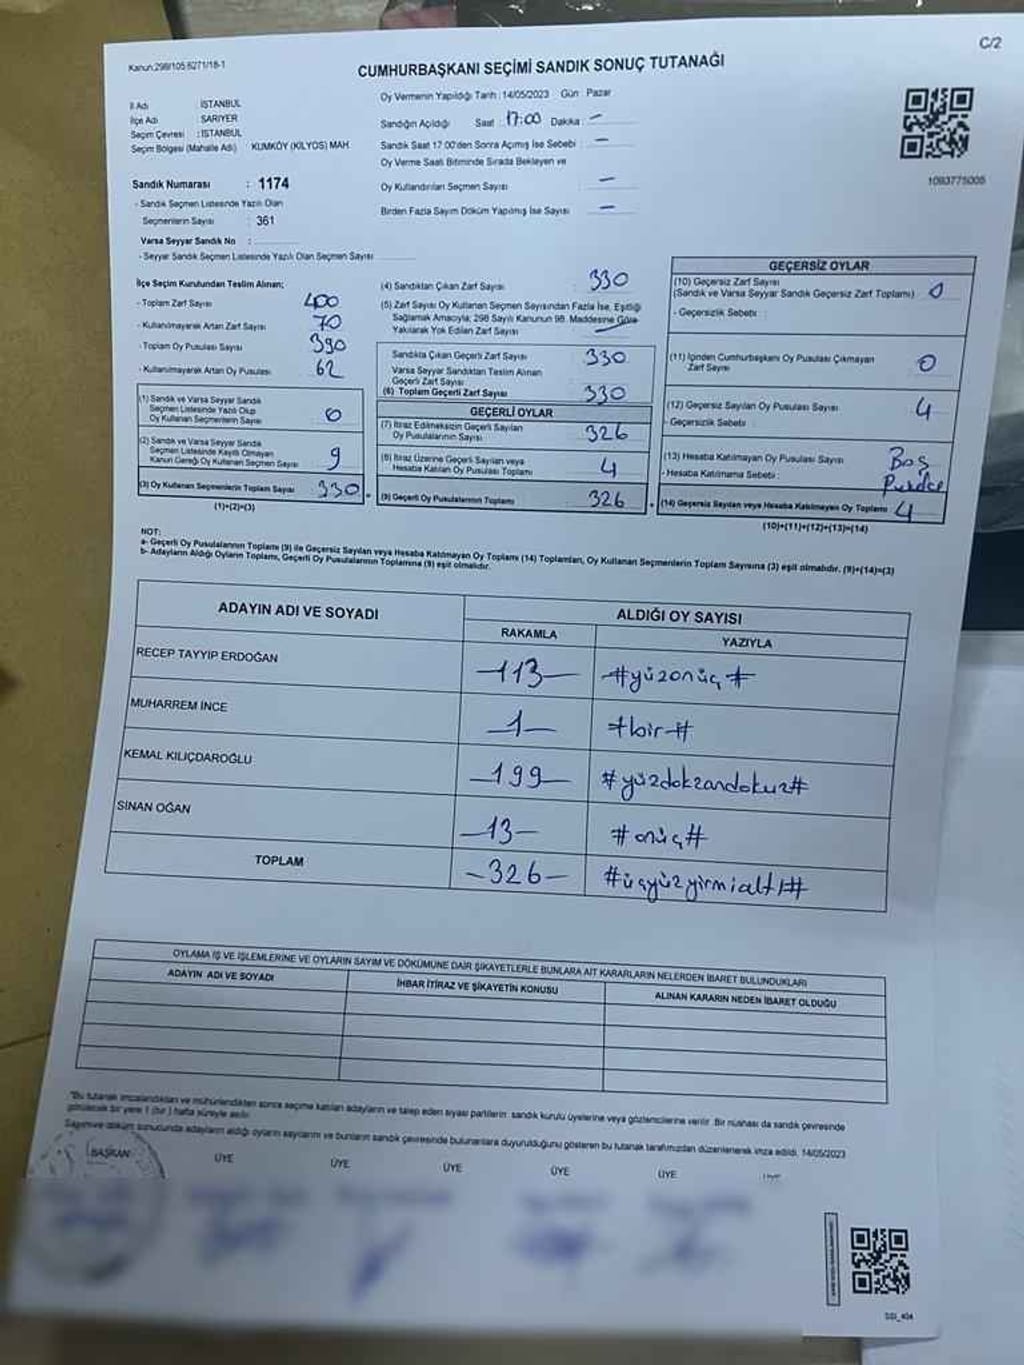 C/2
Kanun:298/105.6271/18-1
CUMHURBAŞKANI SEÇİMİ SANDIK SONUÇ TUTANAĞI
İl Adı : İSTANBUL
İlçe Adı : SARIYER
Seçim Çevresi : İSTANBUL
Seçim Bölgesi (Mahalle Adı) KUMKÖY (KİLYOS) MAH.
Oy Vermenin Yapıldığı Tarih : 14/05/2023 Gün : Pazar
Sandığın Açıldığı Saat : 17:00 Dakika : —
Sandık Saat 17.00'den Sonra Açımış İse Sebebi : —
Oy Verme Saati Bitiminde Sırada Bekleyen ve
Oy Kullandırılan Seçmen Sayısı : —
Birden Fazla Sayım Döküm Yapılmış İse Sayısı : —
1093775005
Sandık Numarası : 1174
- Sandık Seçmen Listesinde Yazılı Olan
Seçmenlerin Sayısı : 361
Varsa Seyyar Sandık No :
- Seyyar Sandık Seçmen Listesinde Yazılı Olan Seçmen Sayısı
İlçe Seçim Kurulundan Teslim Alınan;
- Toplam Zarf Sayısı 400
- Kullanılmayarak Artan Zarf Sayısı 70
- Toplam Oy Pusulası Sayısı 390
- Kullanılmayarak Artan Oy Pusulası 62
(1) Sandık ve Varsa Seyyar Sandık
Seçmen Listesinde Yazılı Olup
Oy Kullanan Seçmenlerin Sayısı 0
(2) Sandık ve Varsa Seyyar Sandık
Seçmen Listesinde Kayıtlı Olmayan
Kanun Gereği Oy Kullanan Seçmen Sayısı 9
(3) Oy Kullanan Seçmenlerin Toplam Sayısı 330
(1)+(2)=(3)
(4) Sandıktan Çıkan Zarf Sayısı 330
(5) Zarf Sayısı Oy Kullanan Seçmen Sayısından Fazla İse, Eşitliği
Sağlamak Amacıyla; 298 Sayılı Kanunun 98. Maddesine Göre
Yakılarak Yok Edilen Zarf Sayısı
Sandıkta Çıkan Geçerli Zarf Sayısı 330
Varsa Seyyar Sandıktan Teslim Alınan
Geçerli Zarf Sayısı
(6) Toplam Geçerli Zarf Sayısı 330
GEÇERLİ OYLAR
(7) İtiraz Edilmeksizin Geçerli Sayılan
Oy Pusulalarının Sayısı 326
(8) İtiraz Üzerine Geçerli Sayılan veya
Hesaba Katılan Oy Pusulası Toplamı 4
(9) Geçerli Oy Pusulalarının Toplamı 326
GEÇERSİZ OYLAR
(10) Geçersiz Zarf Sayısı
(Sandık ve Varsa Seyyar Sandık Geçersiz Zarf Toplamı) 0
- Geçersizlik Sebebi :
(11) İçinden Cumhurbaşkanı Oy Pusulası Çıkmayan
Zarf Sayısı 0
(12) Geçersiz Sayılan Oy Pusulası Sayısı 4
- Geçersizlik Sebebi :
(13) Hesaba Katılmayan Oy Pusulası Sayısı Boş
- Hesaba Katılmama Sebebi :
(14) Geçersiz Sayılan veya Hesaba Katılmayan Oy Toplamı 4
(10)+(11)+(12)+(13)=(14)
NOT:
a- Geçerli Oy Pusulalarının Toplamı (9) ile Geçersiz Sayılan veya Hesaba Katılmayan Oy Toplamı (14) Toplamları, Oy Kullanan Seçmenlerin Toplam Sayısına (3) eşit olmalıdır. (9)+(14)=(3)
b- Adayların Aldığı Oyların Toplamı, Geçerli Oy Pusulalarının Toplamına (9) eşit olmalıdır.
ADAYIN ADI VE SOYADI
ALDIĞI OY SAYISI
RAKAMLA YAZIYLA
RECEP TAYYİP ERDOĞAN —113— #yüzonüç#
MUHARREM İNCE —1— #bir#
KEMAL KILIÇDAROĞLU —199— #yüzdokzandokuz#
SİNAN OĞAN —13— #onüç#
TOPLAM —326— #üçyüzyirmialtı#
OYLAMA İŞ VE İŞLEMLERİNE VE OYLARIN SAYIM VE DÖKÜMÜNE DAİR ŞİKAYETLERLE BUNLARA AİT KARARLARIN NELERDEN İBARET BULUNDUKLARI
ADAYIN ADI VE SOYADI İHBAR İTİRAZ VE ŞİKAYETİN KONUSU ALINAN KARARIN NEDEN İBARET OLDUĞU
"Bu tutanak imzalandıktan ve mühürlendikten sonra seçime katılan adayların ve talep eden siyasi partilerin sandık kurulu üyelerine veya gözlemcilerine verilir. Bir nüshası da sandık çevresinde
görülecek bir yere 1 (bir) hafta süreyle asılır.
Sayım ve döküm sonucunda adayların aldığı oyların sayılarını ve bunların sandık çevresinde bulunanlara duyurulduğunu gösteren bu tutanak tarafımızdan düzenlenerek imza edildi. 14/05/2023
BAŞKAN ÜYE ÜYE ÜYE ÜYE ÜYE